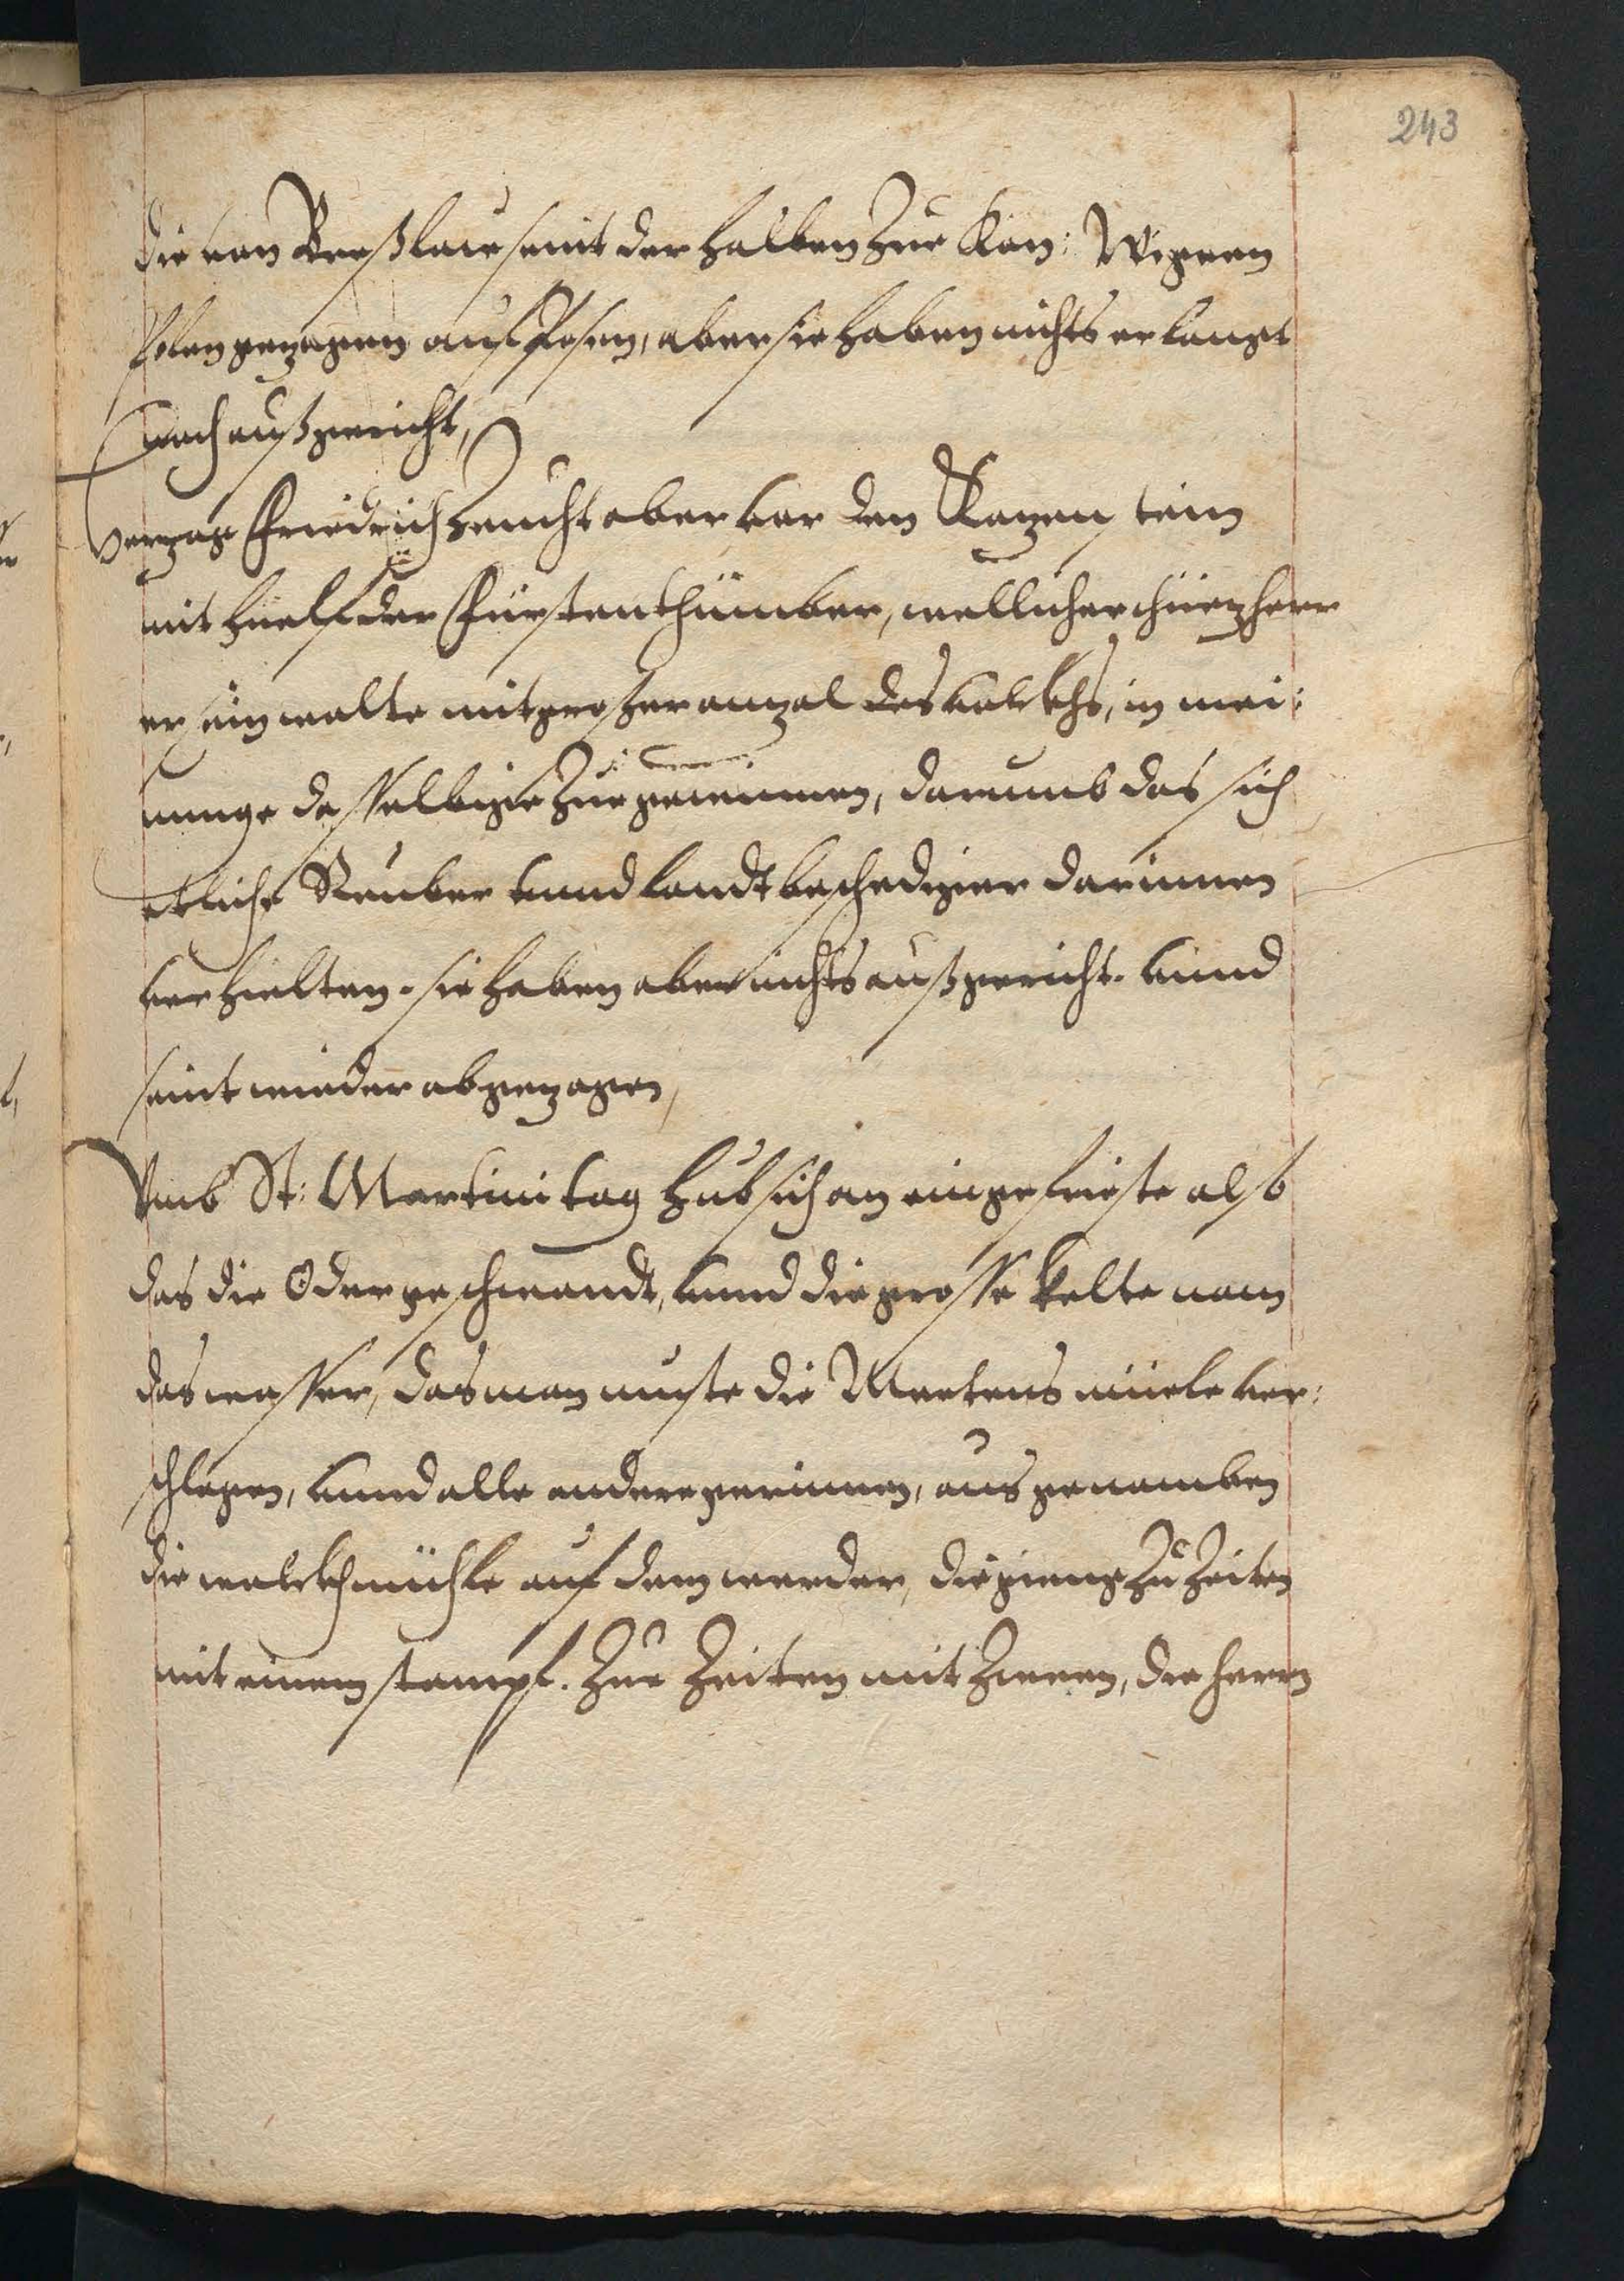 243
die von Breßlau seint derhalben zur Kön:
Polen gezogen auf Posen, aber sie haben nichts erlangt
noch außgericht,
Herzog Friedrich zeucht aber vor den Kazenstein
mit huelf der Fürstenthümber, wellicher
er ein walte mit großer anzal des volckhs, in mei:
nunge dasselbige zue gewinnen, darumb das sich
etliche Reuber unnd landtbeschediger darinnen
verhielten. sie haben aber nichts außgericht. unnd
seint wieder abgezogen,
Vmb St: Martini tag hub sich an ein gefrieste also
das die Oder geschwandt, unnd die grosse kelte nam
das wasser, das man muste die Mertens müele ver:
schlagen, unnd alle andere gerinnen, ausgenomben
die walckhmühle auf dem werder, die gieng zu Zeiten
mit einem stampf. Zue Zeiten mit Zween, die herrn